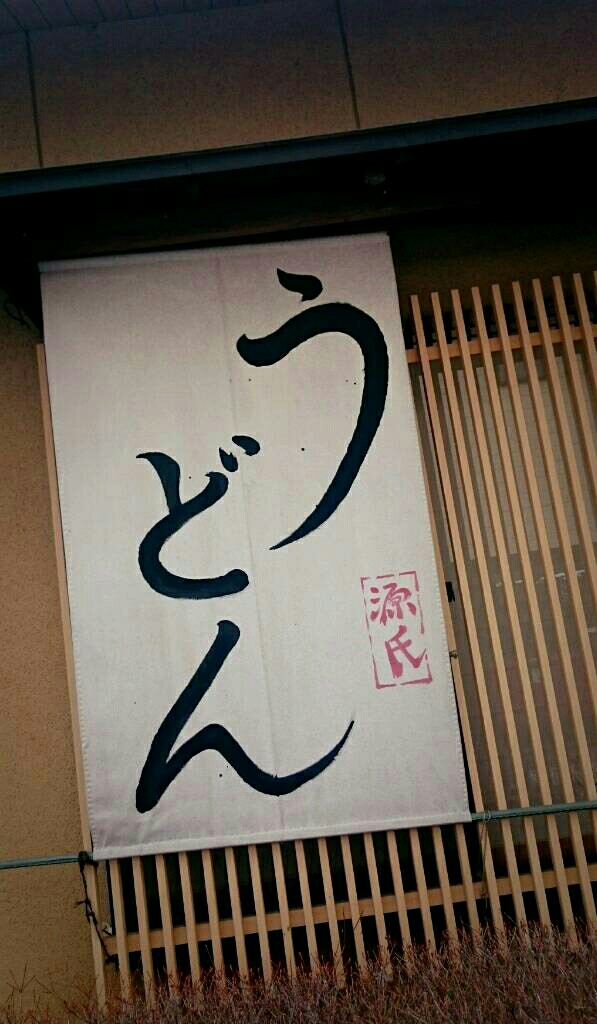 うどん
源氏